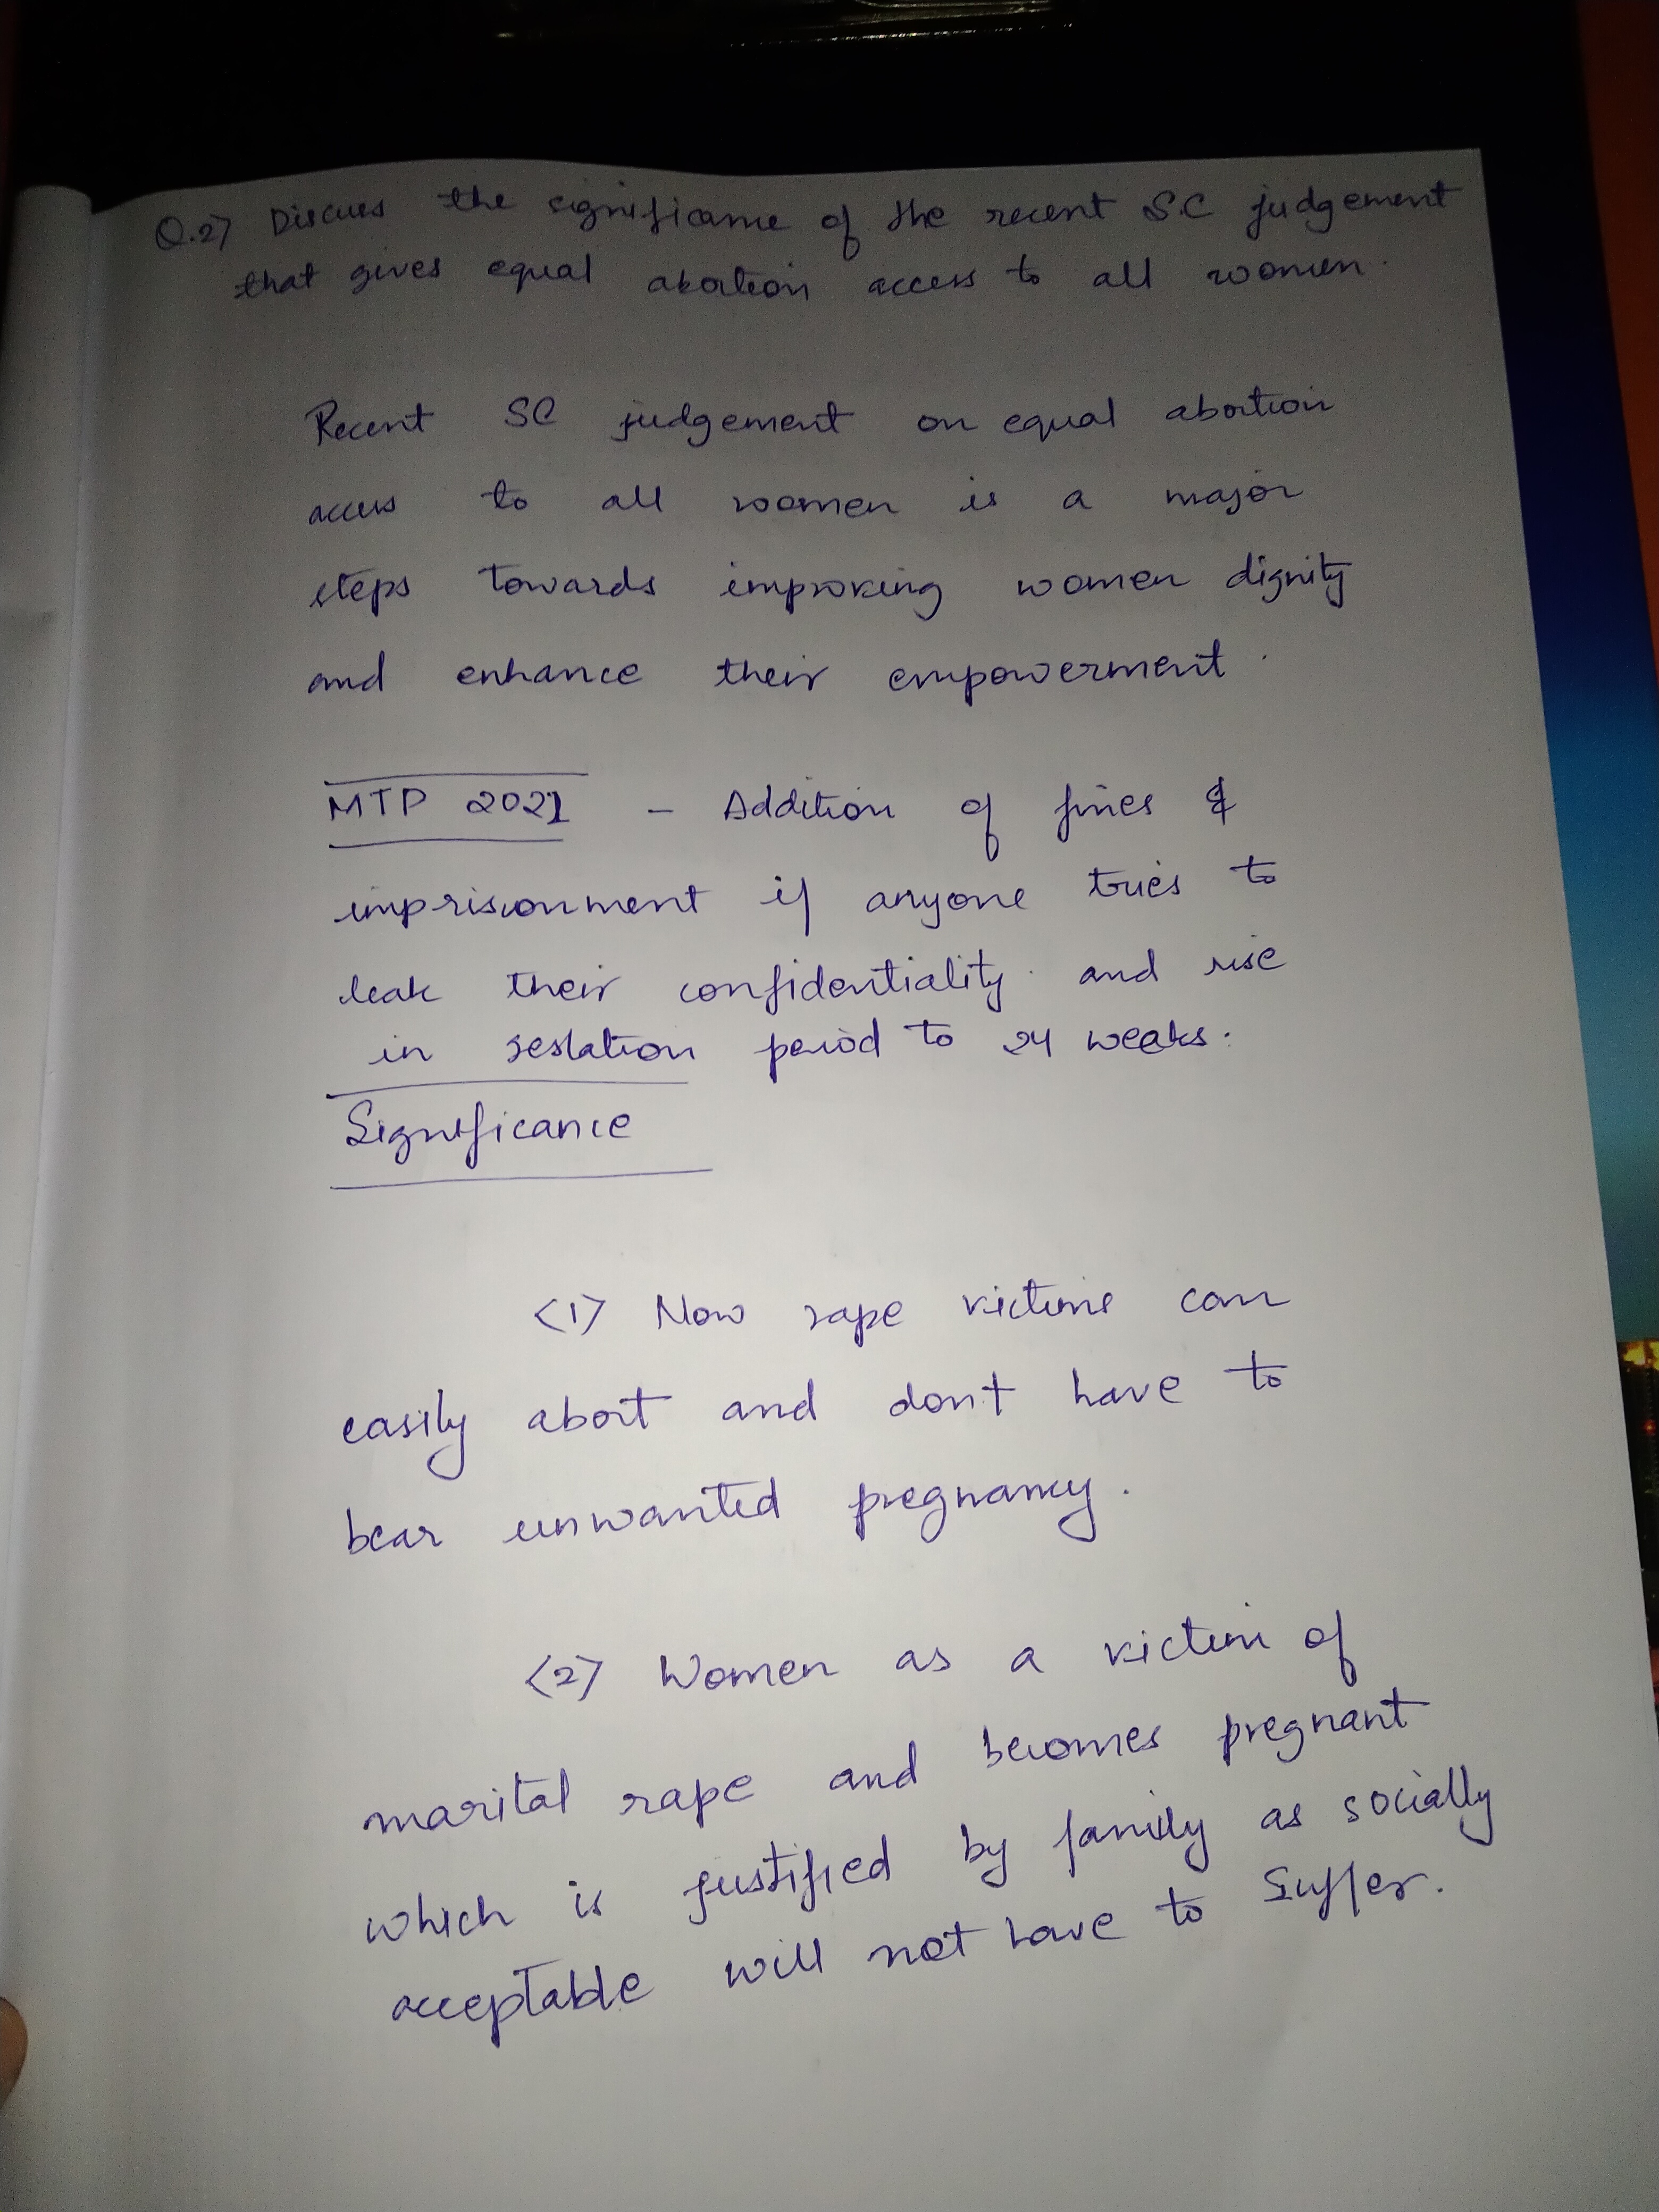 Q.2> Discuss the significance of the recent S.C judgement
that gives equal abortion access to all women.
Recent SC judgement on equal abortion
access to all women is a major
steps towards improving women dignity
and enhance their empowerment.
MTP 2021 - Addition of fines &
imprisonment if anyone tries to
leak their confidentiality and rise
in gestation period to 24 weeks.
Significance
<1> Now rape victims can
easily abort and don't have to
bear unwanted pregnancy.
<2> Women as a victim of
marital rape and becomes pregnant
which is justified by family as socially
acceptable will not have to suffer.